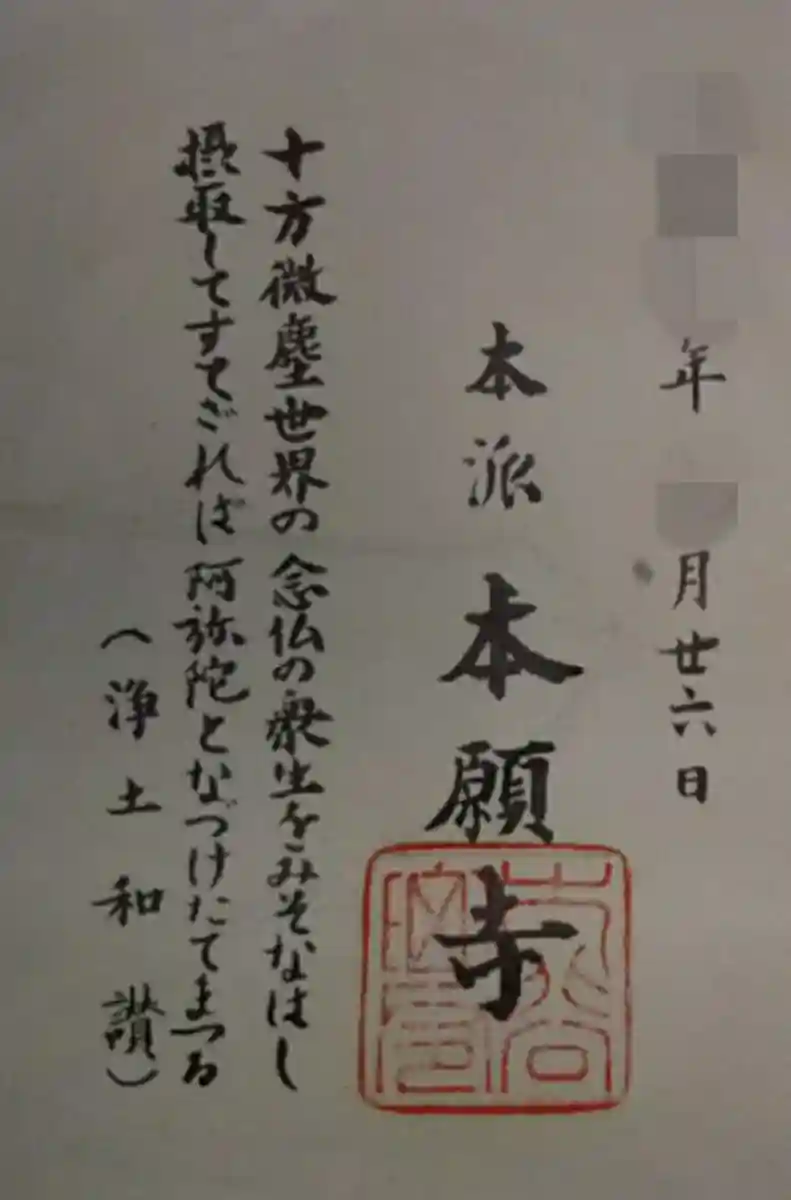 年 月廿六日
本派本願寺
十方微塵世界の念仏の衆生をみそなはし
摂取してすてざれば阿弥陀となづけたてまつる
（浄土和讃）